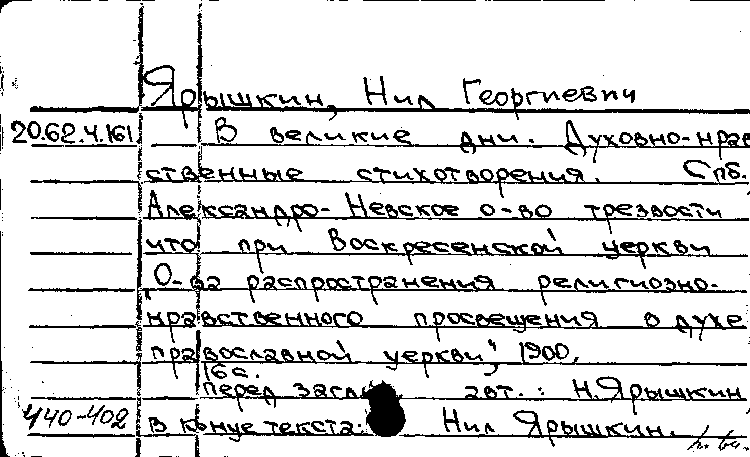 Ярышкин, Нил Георгиевич
20.62.4.161. В великие дни. Духовно-нрав
ственные стихотворения. Спб.
Александро-Невское о-во трезвости
что при Воскресенской церкви
"О-ва распространения религиозно-
нравственного просвещения в духе
православной церкви", 1900.
16 с.
Перед загл. авт.: Н. Ярышкин,
440-402 в конце текста: Нил Ярышкин.